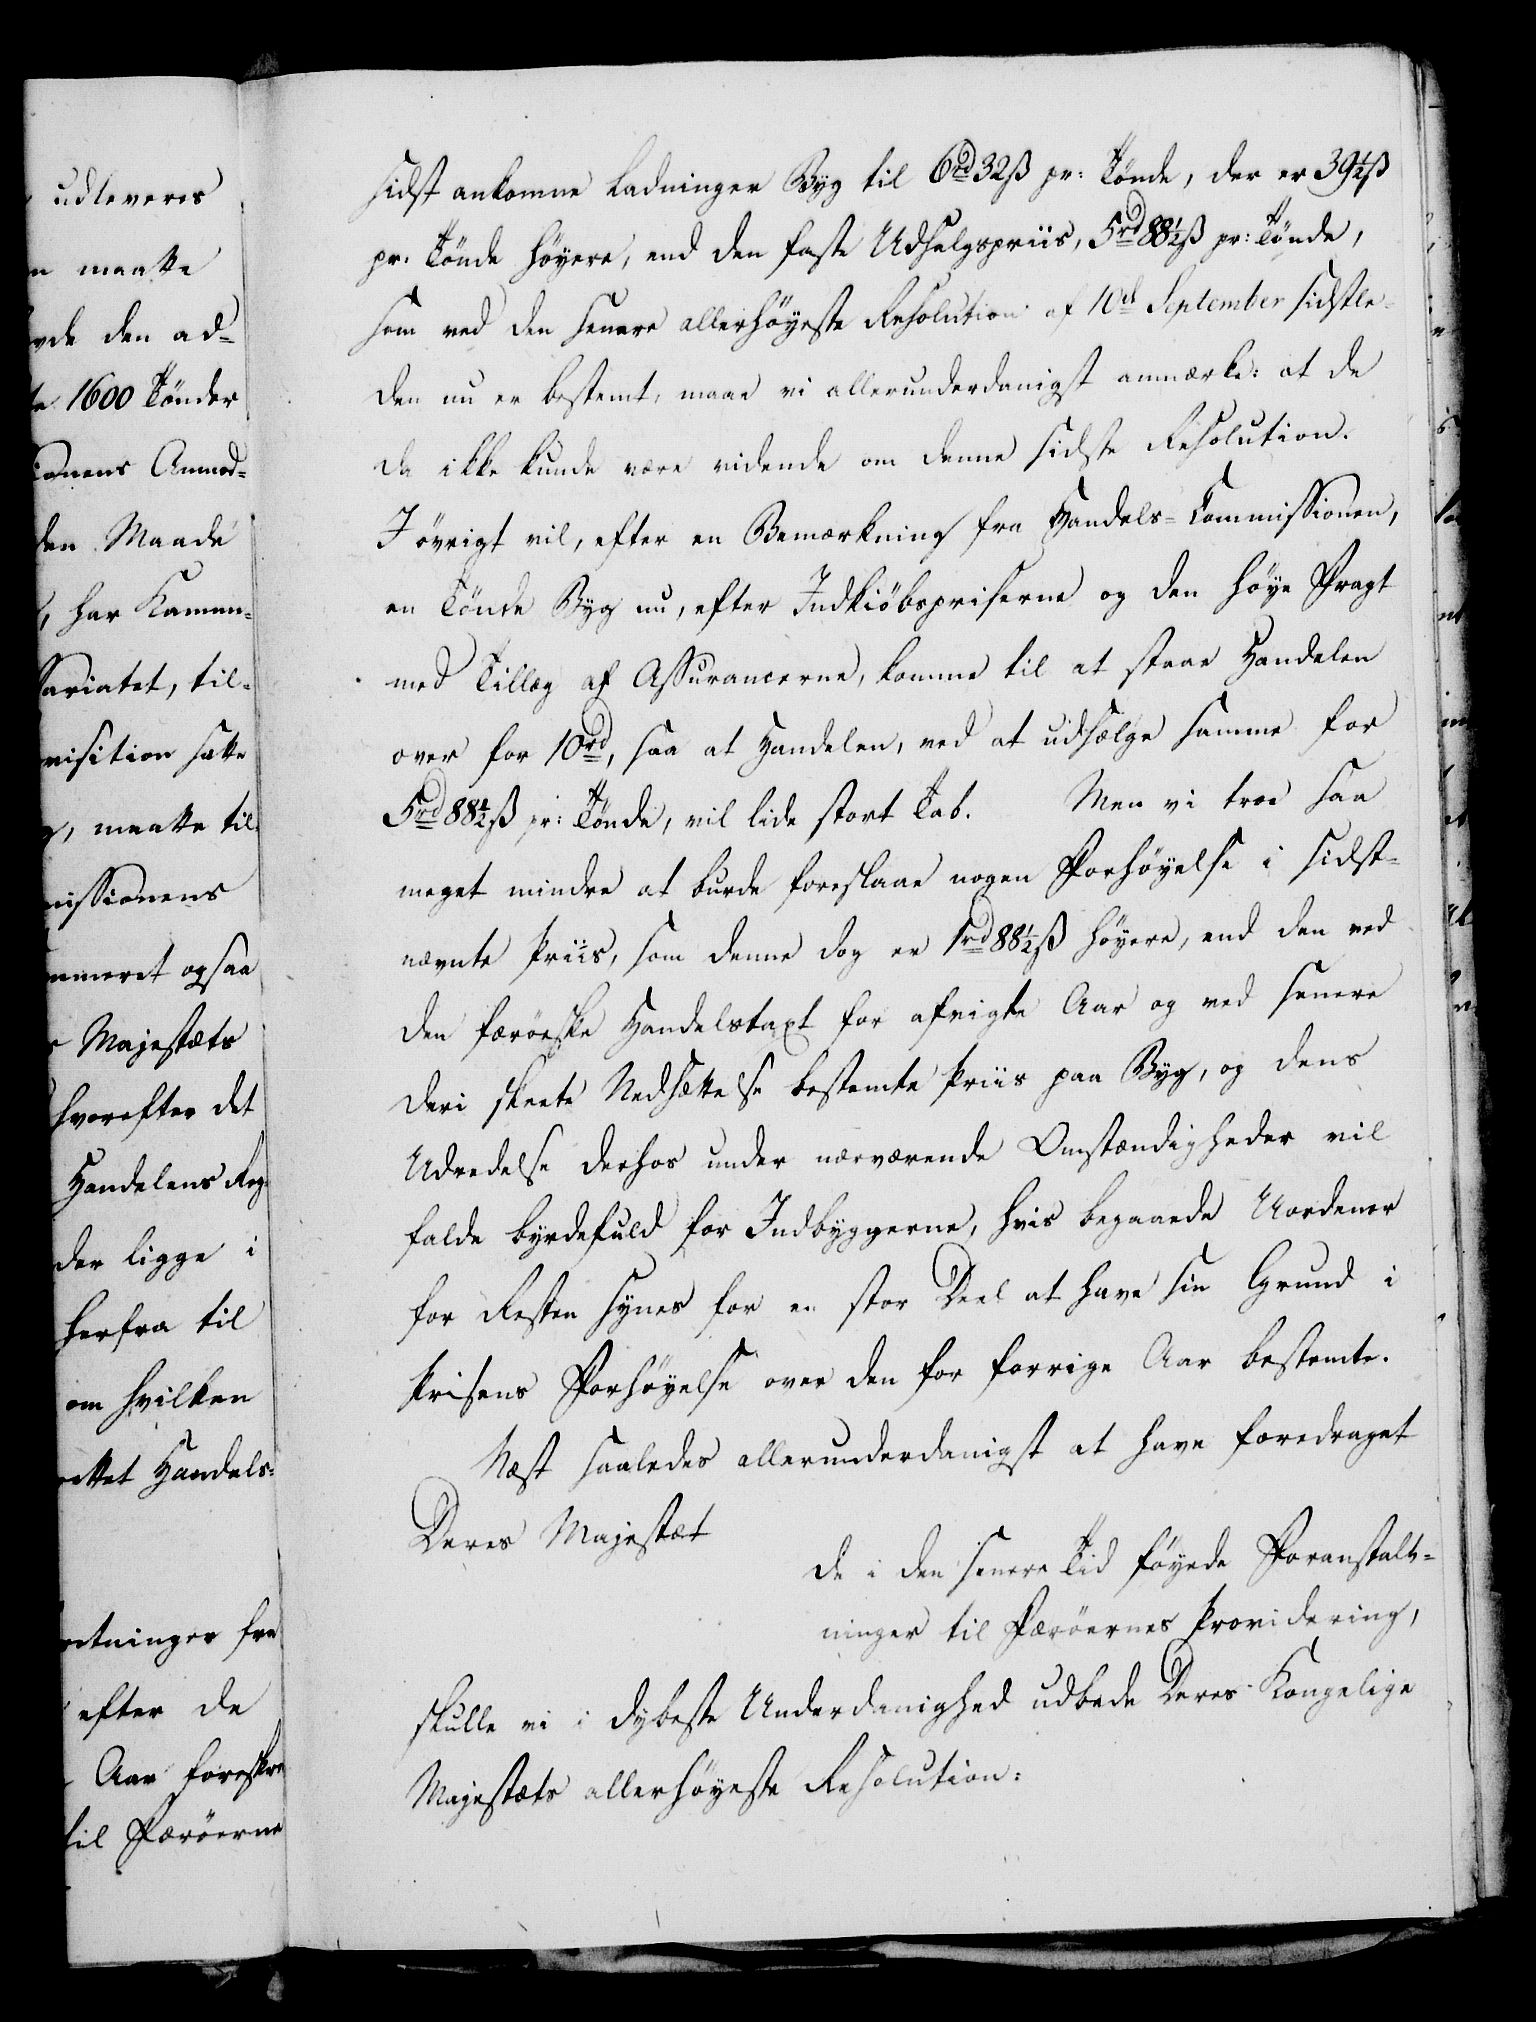 udleveres
maatte
den ad-
1600 Tönder
Anmod-
den Maade
, har Kamm-
sariatet, til-
sætte
, maatte til-
missionens
ogsaa
Majestæts
hvorefter det
Handelens Reg-
der ligge i
herfra til
om hvilken
Handels-
retninger fra
efter de
Aar foreskre
til Færöerne
sidst ankomne Ladninger Byg til 6rd 32ß pr: Tönde, der er 39½ß
pr. Tönde höyere, end den faste Udsalgspriis, 5rd 88½ß pr: Tönde,
som ved den senere allerhöyeste Resolution af 10de September sidstle-
den nu er bestemt, maae vi allerunderdanigst anmærke: at de
da ikke kunde være vidende om denne sidste Resolution.
I övrigt vil, efter en Bemærkning fra Handels-Commissionen,
en Tönde Byg nu, efter Indkiöbspriserne og den höye Fragt
med Tillæg af Assurancerne, komme til at staae Handelen
over for 10rd, saa at Handelen, ved at udsælge samme for
5rd 88½ß pr: Tönde, vil lide stort Tab. Men vi troe saa
meget mindre at burde foreslaae nogen Forhöyelse i sidst-
nævnte Priis, som denne dog er 1rd 88½ß höyere, end den ved
den færöeske Handelstaxt for afvigte Aar og ved senere
deri skeete Nedsættelse bestemte Priis paa Byg, og dens
Udredelse derhos under nærværende Omstændigheder vil
falde byrdefuld for Indbyggerne, hvis begaaede Uordener
for Resten synes for en stor Deel at have sin Grund i
Prisens Forhöyelse over den for forrige Aar bestemte.
Næst saaledes allerunderdanigst at have foredraget
Deres Majestæt
de i den senere Tid föyede Foranstalt-
ninger til Færöernes Providering,
skulle vi i dybeste Underdanighed udbede Deres Kongelige
Majestæts allerhöyeste Resolution: